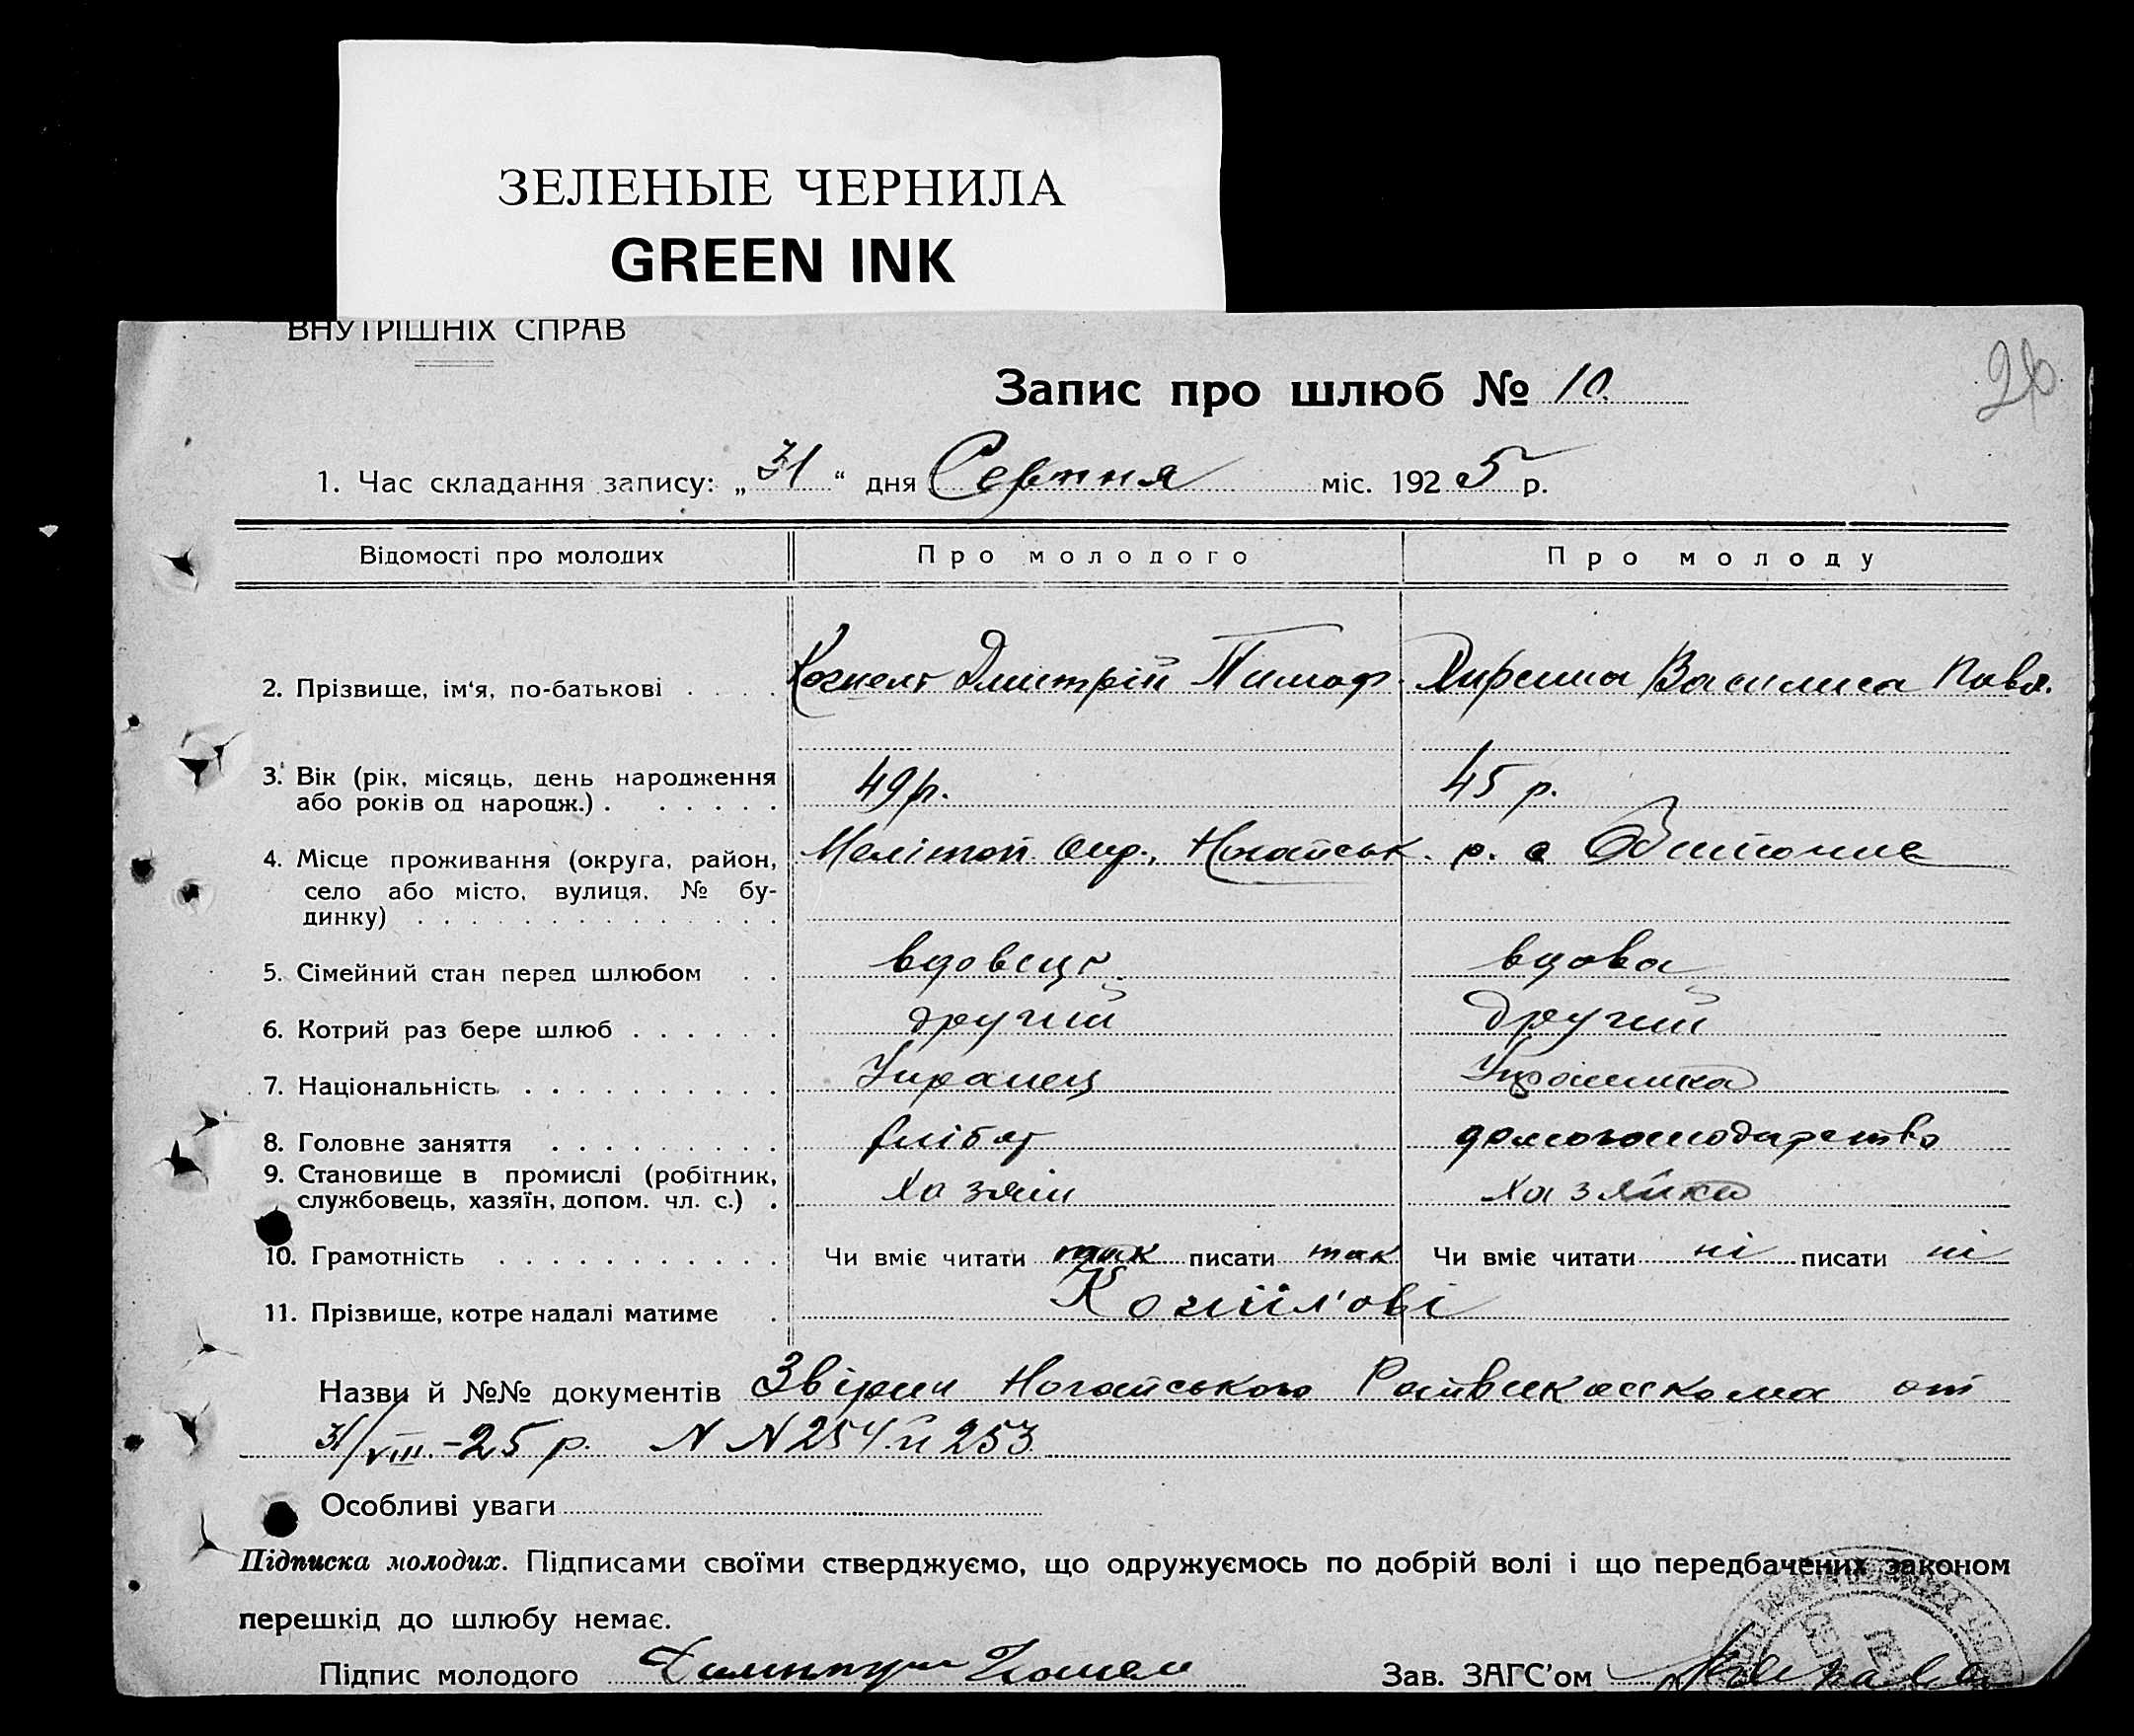 ЗЕЛЕНЫЕ ЧЕРНИЛА
GREEN INK
ВНУТРІШНІХ СПРАВ
26
Запис про шлюб № 10.
1. Час складання запису: „31“ дня Серпня міс. 1925 р.
Відомості про молодих Про молодого Про молоду
2. Прізвище, ім‘я, по-батькові Дмитрій Тимоф. Василиса Павл.
3. Вік (рік, місяць, день народження 49 р. 45 р.
або років од народж.)
4. Місце проживання (округа, район, Мелітоп. окр., Ногайськ. р. с Обиточне
село або місто, вулиця, № бу-
динку)
5. Сімейний стан перед шлюбом вдовець вдова
6. Котрий раз бере шлюб другий другий
7. Національність Украинец Українка
8. Головне заняття хлібор домогосподарство
9. Становище в промислі (робітник, хазяїн хазяйка
службовець, хазяїн, допом. чл. с.)
10. Грамотність Чи вміє читати так писати так Чи вміє читати ні писати ні
11. Прізвище, котре надалі матиме
Назви й №№ документів Звірки Ногайського Райвикаскома от
31/VIII.-25 р. N N 254 й 253
Особливі уваги
Підписка молодих. Підписами своїми стверджуємо, що одружуємось по добрій волі і що передбачених законом
перешкід до шлюбу немає.
Підпис молодого Зав. ЗАГС’ом